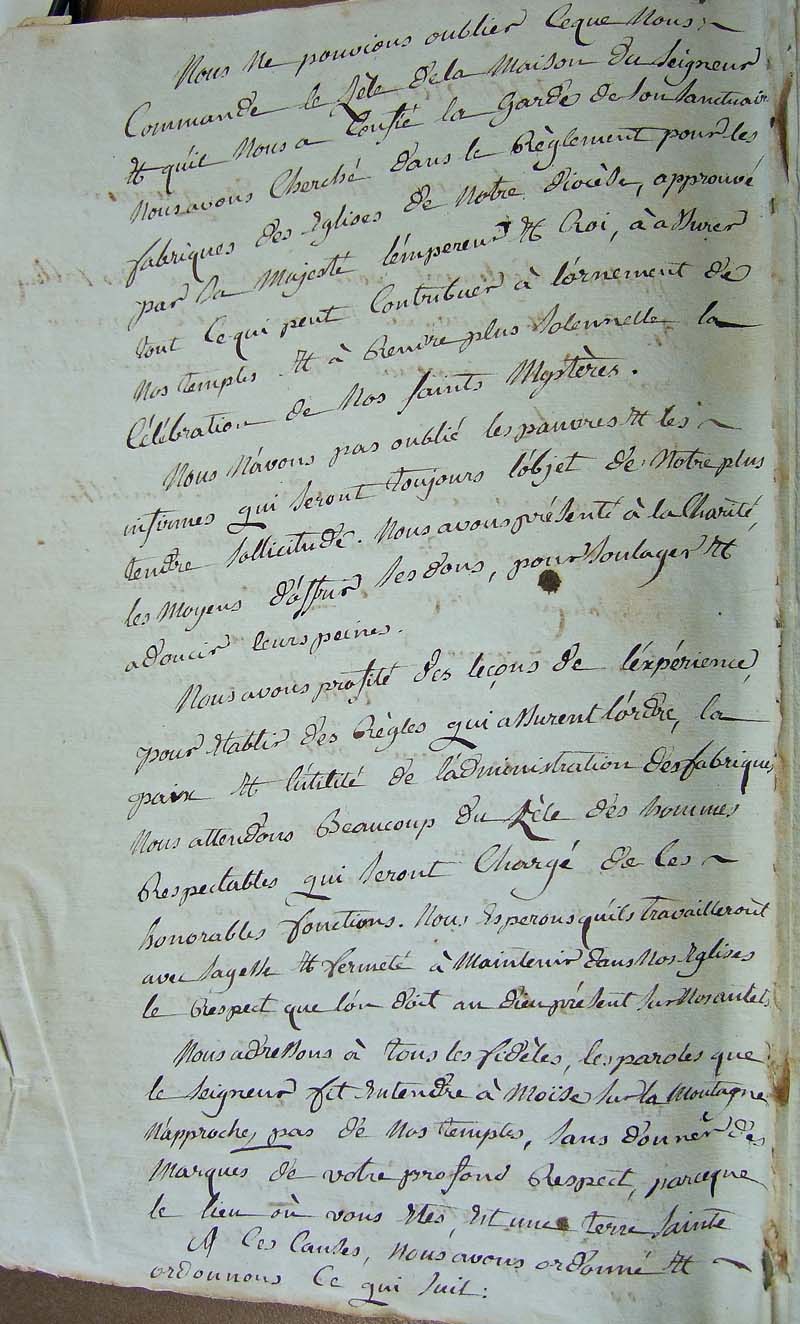 Nous ne pouvions oublier ceque Nous
Commande le Zèle dela Maison du Seigneur
et qu'il Nous a Confié la Garde de son Sanctuaire
Nous avons Cherché dans le Règlement pour les
fabriques des Eglises de Notre diocèse, approuvé
par Sa Majesté l'émpereur et Roi, à assurer
tout Ce qui peut Contribuer à l'órnement de
Nos temples et à Rendre plus Solennelle la
Célébration de Nos Saints Mystères.
Nous N'avons pas oublié les pauvres et les
infirmes qui Seront toujours l'óbjet de Notre plus
tendre Sollicitude. Nous avons présenté à la Charité
les Moyens d'óffrir Ses dons, pour Soulager et
adoucir leurs peines.
Nous avons profité des leçons de l'éxpérience
pour Etablir des Règles qui assurent l'órdre, la
paix et l'útilité de l'ádministration des fabriques
Nous attendons Beaucoup du Zèle des hommes
Respectables qui Seront Chargé de Ces
honorables fonctions. Nous Esperons qu'ils travailleront
avec Sagesse et fermeté à Maintenir dans Nos Eglises
le Respect que l'ón doit au dieu présent Sur Nos autels
Nous adressons à tous les fidèles, les paroles que
le Seigneur fit Entendre à Moïse Sur la Montagne
N'approches pas de Nos temples, Sans donner des
Marques de votre profond Respect, parceque
le lieu où vous Etes, Est une terre Sainte
A Ces Causes, Nous avons ordonné et
ordonnons Ce qui Suit :